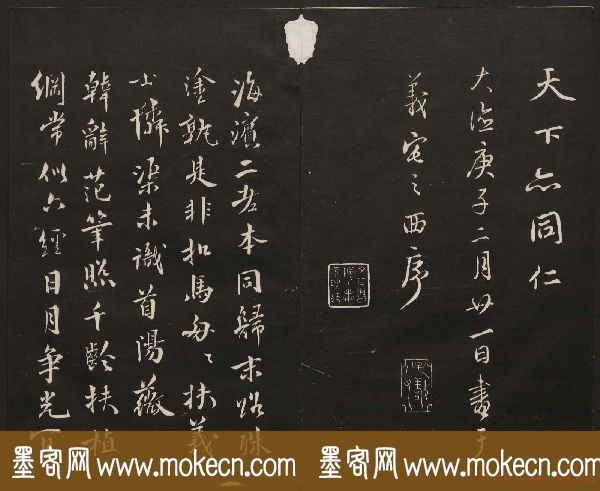 天下亦同仁
大德庚子二月廿一日書于
義宅之西序
海濱二老本同歸末路殊
塗孰是非扣馬匆〻扶義
士憐渠未識首陽薇
韓辭范筆照千齡扶植
綱常似六經日月爭光
墨客网www.mokecn.com
墨客网www.mokecn.com